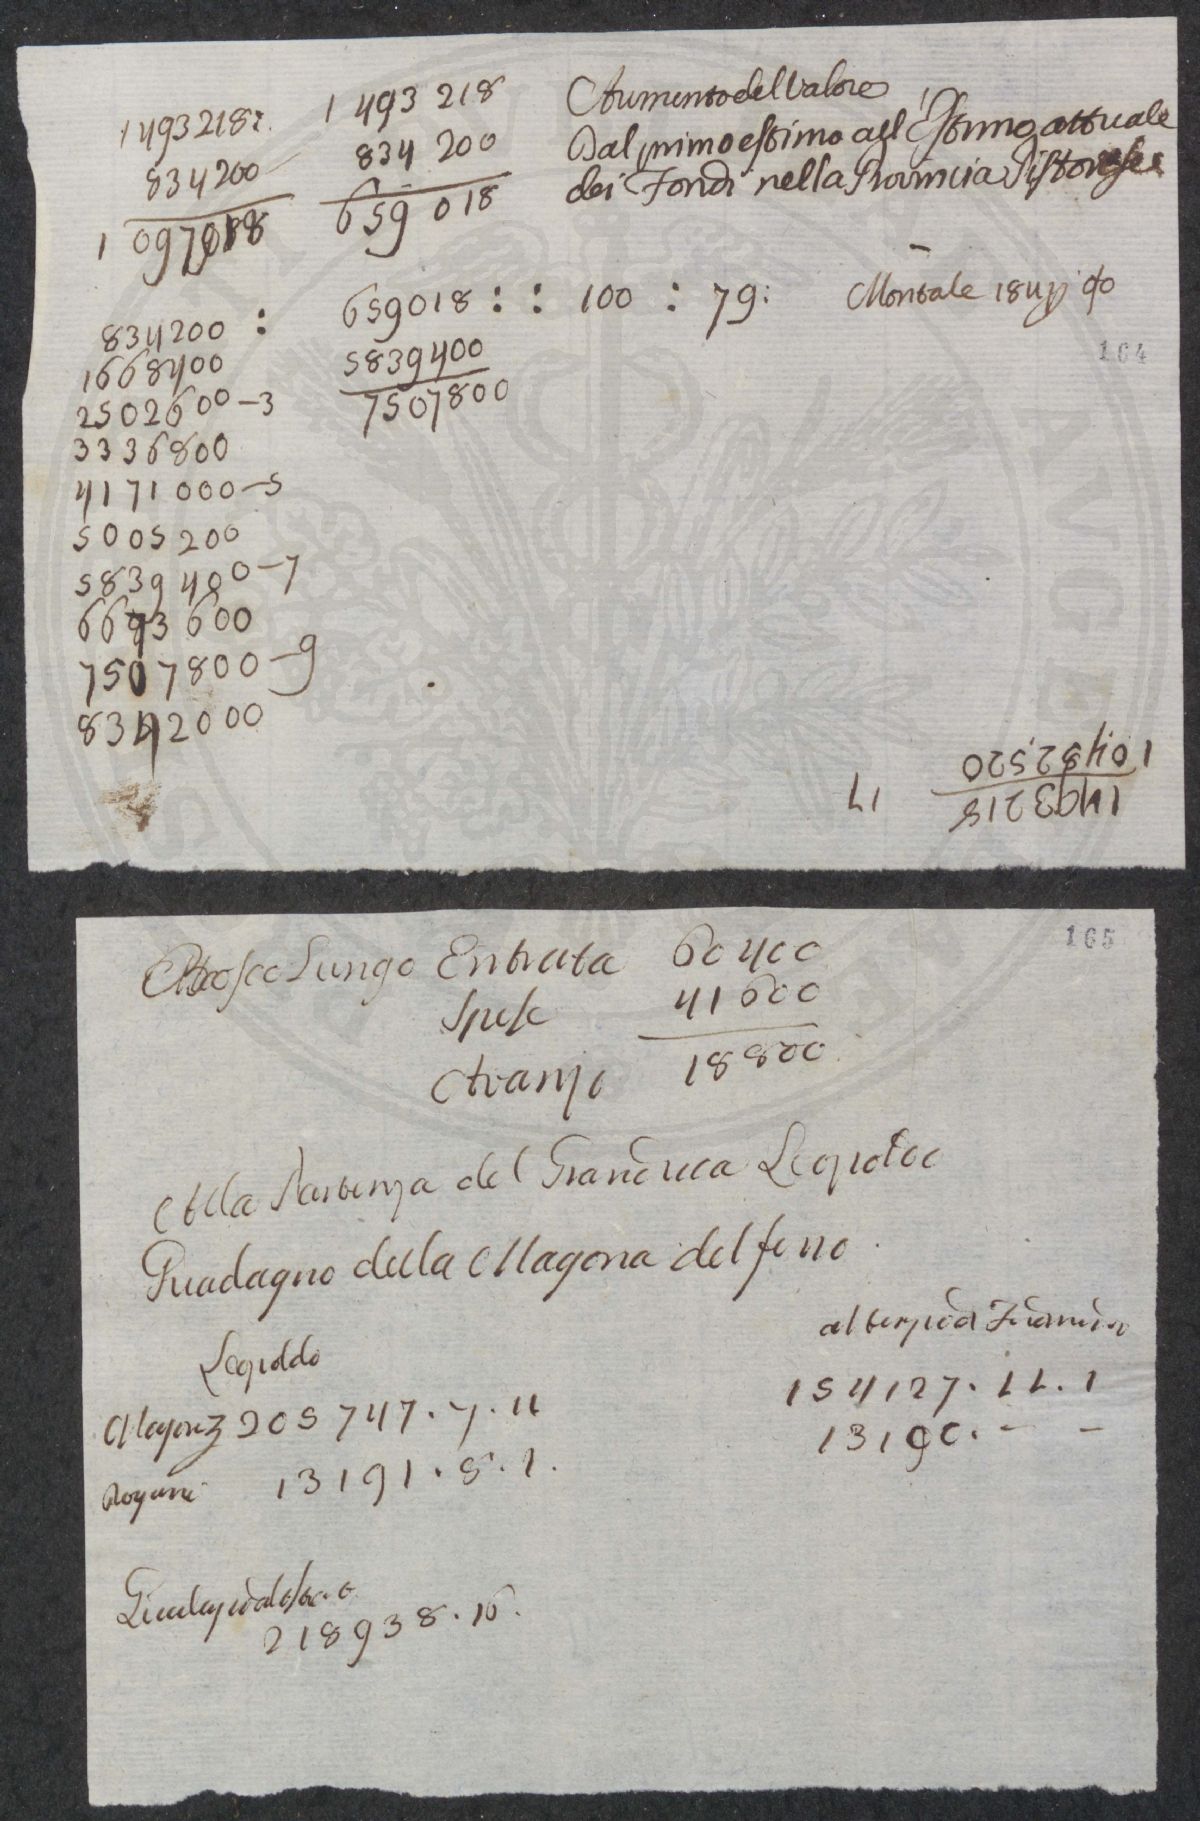 1493218:
834200
1 097018
1 493 218
834 200
659 018
Aumento del Valore
Dal primo estimo all'Estimo attuale
dei Fondi nella Provincia Pistojese
834200 : 659018 : : 100 : 79:
Montale
164
1668400
2502600-3
3336800
4171000-5
5005200
5839400-7
6673600
7507800-9
8342000
5839400
7507800
17
1493218
10,452,520
165
Bosco Lungo Entrata 60400
Spese 41600
Avanzo 18800
Alla Partenza del Granduca Leopoldo
Guadagno della Magona del ferro
Leopoldo
al tempo di
Magona 205747.7.11
154127.11.1
13191.8.1.
13190. - -
218938.16.